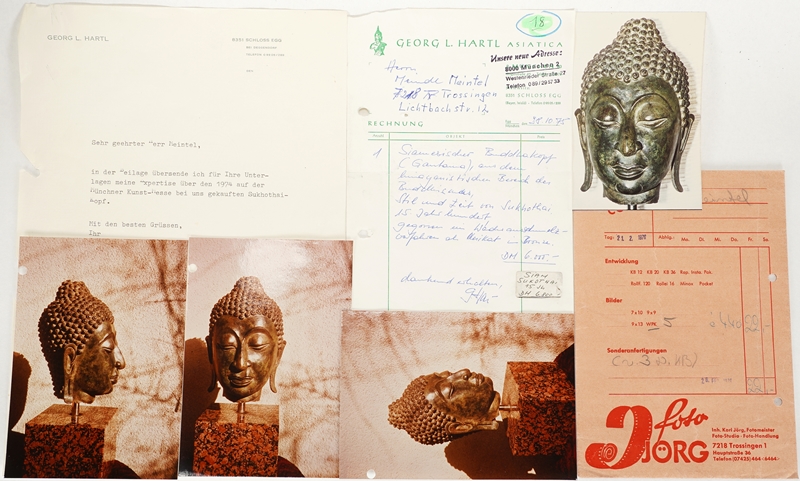 GEORG L. HARTL
8351 SCHLOSS EGG
BEI DEGGENDORF
Sehr geehrter Herr Meintel,
in der Beilage übersende ich für Ihre Unter-
lagen meine Expertise über den 1974 auf der
Münchner Kunst-Messe bei uns gekauften Sukhothai-
Kopf.
Mit den besten Grüssen,
Ihr
18
GEORG L. HARTL ASIATICA
Unsere neue Adresse:
8000 München 2
Westenrieder Straße
Telefon 089/
SCHLOSS EGG
Herrn
Meintel
7218 Trossingen
Lichtbachstr. 12
RECHNUNG
Anzahl OBJEKT Preis
1 Siamesischer Buddhakopf
(Gautama), aus dem
hinayanistischen Bereich des
Buddhismus,
Stil und Zeit von Sukhothai
15. Jahrhundert
gegossen im Wachsausschmelz-
verfahren als Unikat in Bronze.
DM 6.800.-
dankend erhalten,
SIAM
SUKOTHAI
15. Jh
DM 6.800
Tag: Abhlg.: Mo. Di. Mi. Do. Fr. Sa.
Entwicklung
KB 12 KB 20 KB 36 Rep. Insta. Pak.
Rollf. 120 Rollei 16 Minox Pocket
Bilder
7 x 10 9 x 9
9 x 13 WPK. 5 à 4.40 22,-
Sonderanfertigungen
22,-
foto
JÖRG
Inh. Karl Jörg, Fotomeister
Foto-Studio · Foto-Handlung
7218 Trossingen 1
Hauptstraße 36
Telefon (07425) 464 · 6464